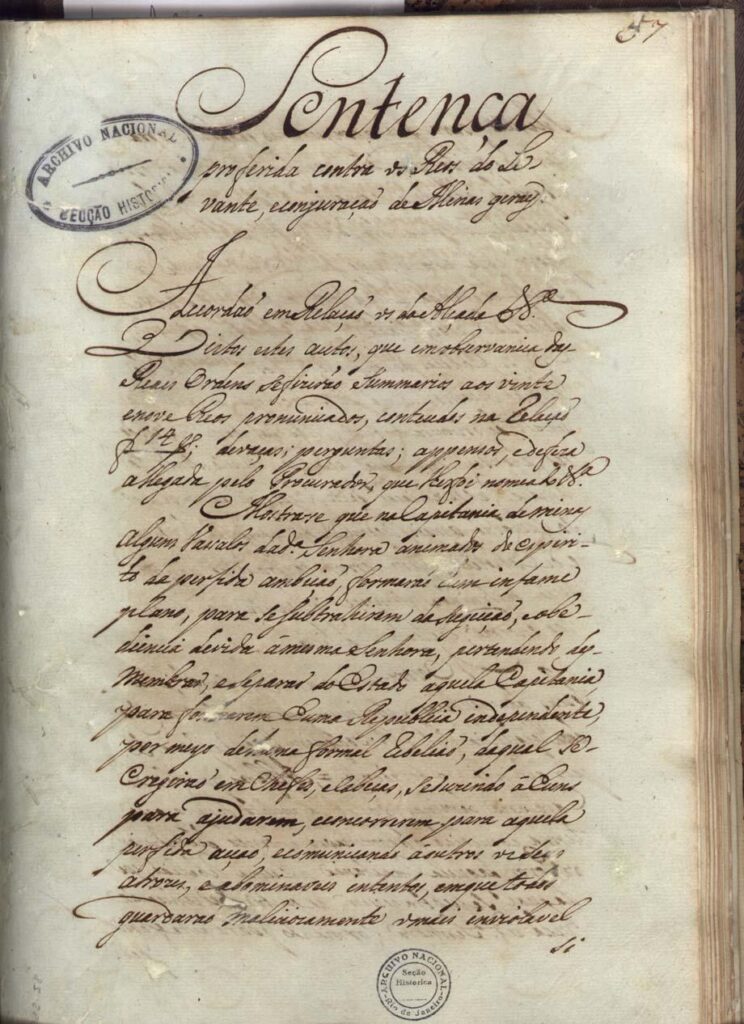 57
Sentença
proferida contra os Reos do Le-
vante, econjuraçaõ de Minas geraes.
ARCHIVO NACIONAL
SECÇÃO HISTORICA
Acordaõ em Relaçaõ os da Alçada &ª
Vistos estes autos, que em observancia das
Reaes Ordens sefizeraõ Summarios aos vinte
enove Reos pronunciados, conteudos na Relaçaõ
f 14 devaças; perguntas; appensos, edefeza
allegada pelo Procurador, que lhesfoi nomeado &ª
Mostrase que na Capitania de minas
alguns Vasalos dadª Senhora animados do espiri-
to da perfida ambiçaõ, formaraõ hum infame
plano, para se subtrahirem da sugeiçaõ, eobe-
diencia devida âmesma Senhora, pertendendo des-
membrar, eseparar do Estado aquela Capitania,
para formarem huma Republica independente,
por meyo dehuma formal rebeliaõ, daqual se-
erigiraõ em Chefes, ecabeças, seduzindo â huns
para ajudarem, econcorrerem para aquela
perfida açaõ, ecomunicando âoutros os seus
atrozes, e abominaveis intentos, emque todos
guardaraõ maliciozamente omais inviolavel
si
ARCHIVO NACIONAL
Seção
Historica
Rio de Janeiro